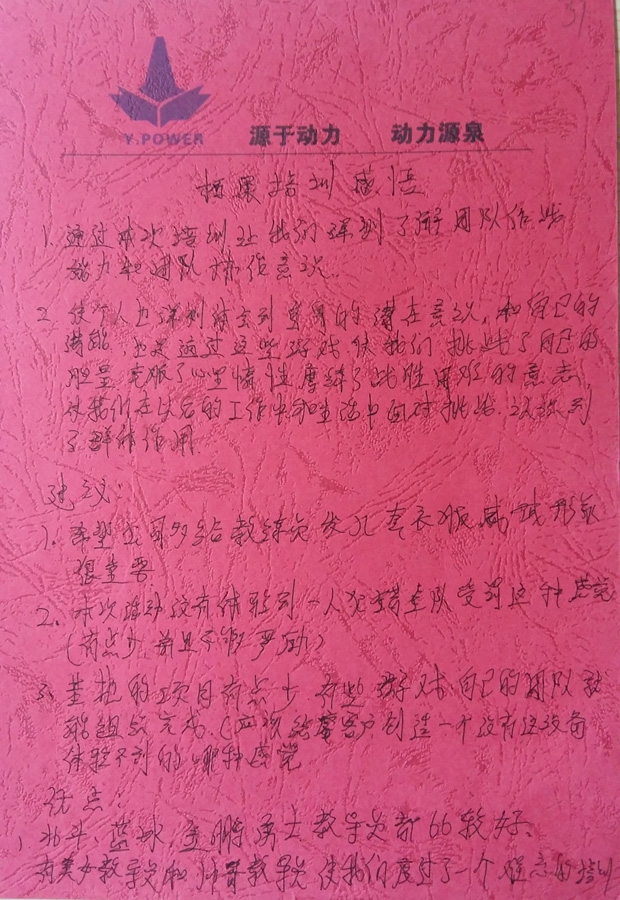 Y·POWER
源于动力 动力源泉
拓展培训感悟
1. 通过本次培训让我们深刻了解团队作战
能力和团队协作意识.
2. 使个人也深刻体会到自身的潜在意识, 和自己的
潜能, 也是通过这些游戏使我们挑战了自己的
胆量, 克服了心里惰性磨练了战胜困难的意志,
使我们在以后的工作中和生活中面对挑战. 认识到
了群体作用.
建议:
1. 希望公司多给教练员发几套衣服, 形象
很重要
2. 本次活动没有体验到一人犯错全队受罚这种感觉
(有点少, 并且不够严励)
3. 的项目有点少 有些游戏自己的团队就
能组织完成 创造一个没有这设备
体验不到的哪种感觉
优点:
1 北斗、蓝冰、金鹏、勇士教导员都66较好、
有美女教导员和帅哥教导员使我们度过了一个难忘的培训